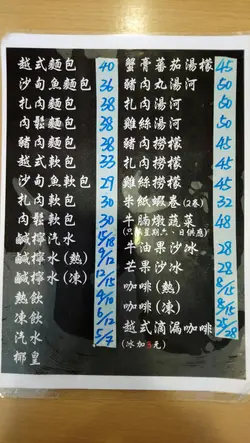 越式麵包 40
沙甸魚麵包 36
扎肉麵包 38
內鬆麵包 38
豬肉麵包 38
越式軟包 33
沙甸魚軟包 29
扎肉軟包 30
內鬆軟包 30
鹹檸汽水 15/18
鹹檸水（熱） 9/12
鹹檸水（凍） 12/15
熱飲 4/10
凍飲 6/12
汽水 5/7
椰皇
蟹膏蕃茄湯檬 45
豬肉丸湯河 60
扎肉湯河 50
雞絲湯河 50
豬肉撈檬 45
扎肉撈檬 45
雞絲撈檬 45
米紙蝦卷（2条） 32
牛腩燉蔬菜 48
（只限星期六、日供應）
牛油果沙冰 28
芒果沙冰 28
咖啡（熱） 8/15
咖啡（凍） 8/15
越式滴漏咖啡 25/28
（冰加3元）